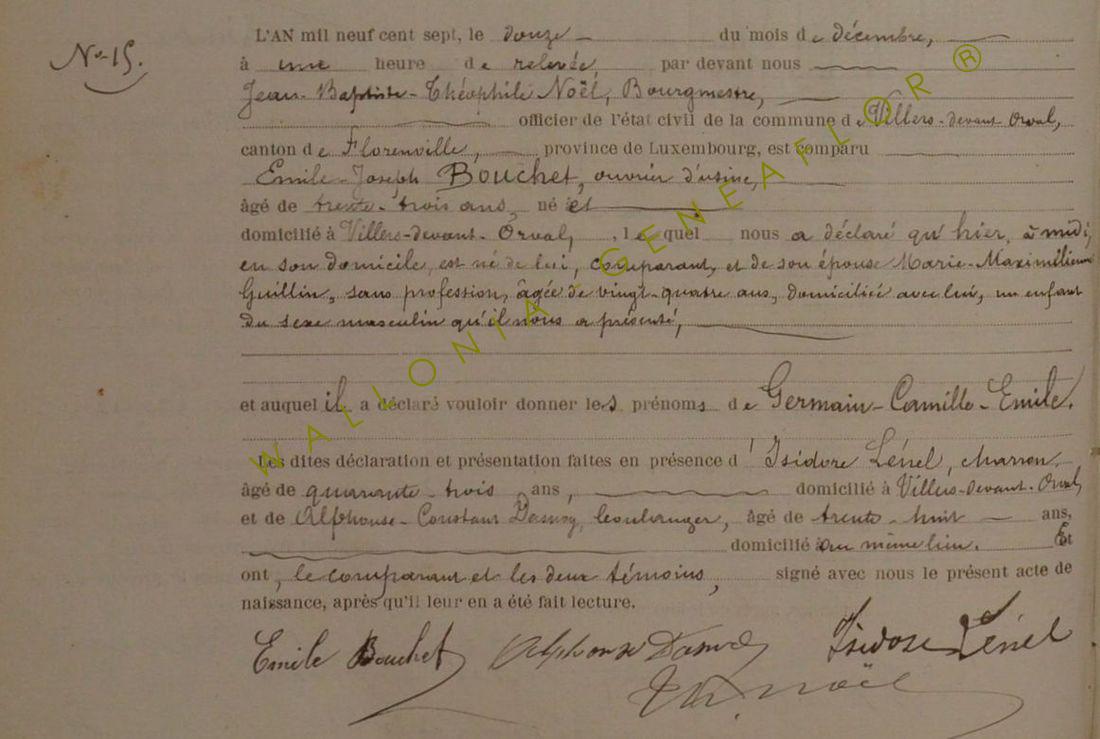 Nº 15.
L'AN mil neuf cent sept, le douze du mois de décembre,
à une heure de relevée, par devant nous
Jean-Baptiste-Théophile Noël, Bourgmestre,
officier de l'état civil de la commune de Villers-devant-Orval,
canton de Florenville, province de Luxembourg, est comparu
Emile-Joseph Bouchet, ouvrier d'usine,
âgé de trente-trois ans, né et
domicilié à Villers-devant-Orval, lequel nous a déclaré qu'hier, à midi,
en son domicile, est né de lui, comparant, et de son épouse Marie-Maximilienne
Guillin, sans profession, âgée de vingt-quatre ans, domiciliée avec lui, un enfant
du sexe masculin qu'il nous a présenté,
et auquel il a déclaré vouloir donner les prénoms de Germain-Camille-Emile.
Les dites déclaration et présentation faites en présence d'Isidore Lénel, charron,
âgé de quarante-trois ans, domicilié à Villers-devant-Orval,
et de Alphonse-Constant boulanger, âgé de trente-huit ans,
domicilié au même lieu. Et
ont, le comparant et les deux témoins, signé avec nous le présent acte de
naissance, après qu'il leur en a été fait lecture.
Emile Bouchet Alphonse Isidore Lénel
Th. Noël
WALLONIA - GENEAFLOR ®